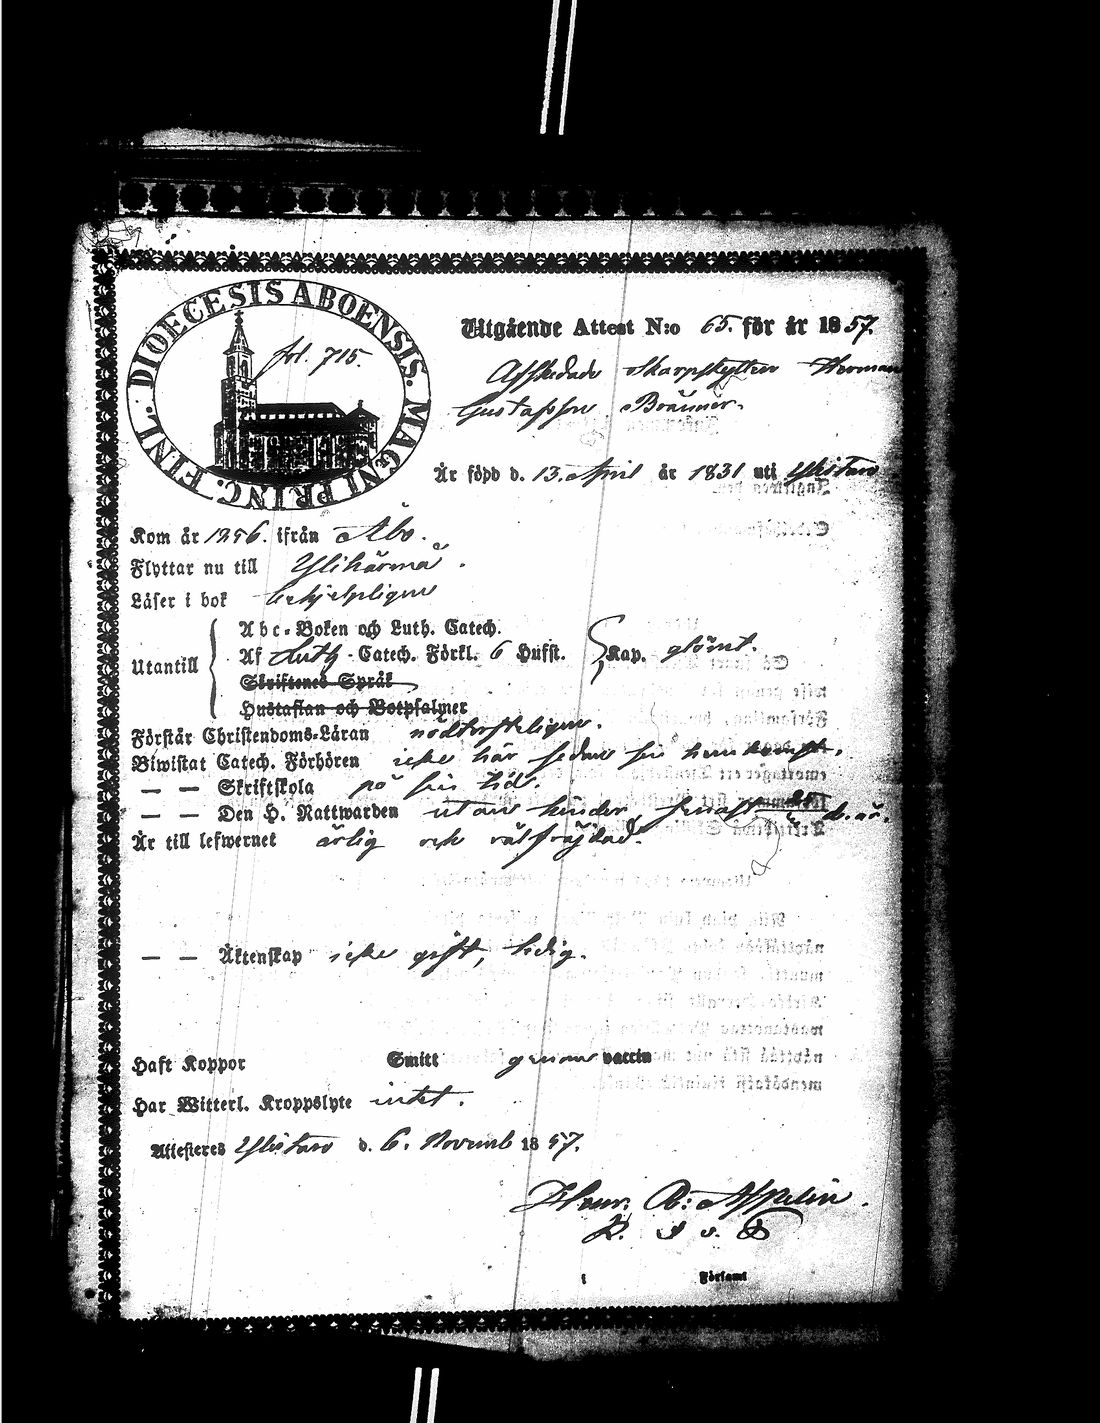 DIOECESIS ABOENSIS. MAGNI PRINC. FINL.
fol. 715.
Utgående Attest N:o 65. för år 1857.
Afskedade Skarpskytten Herman
Gustafsson Bränner.
Är född d. 13. April år 1831 uti Ylistaro
Kom år 1856. ifrån Åbo.
Flyttar nu till Ylihärmä.
Läser i bok behjelpligen
Utantill
Abc-Boken och Luth. Catech.
Af Luth. Catech. Förkl. 6 Hufst. Kap. glömt.
Skriftenes Språk
Hustaflan och Botpsalmer
Förstår Christendoms-Läran nödtorfteligen.
Biwistat Catech. Förhören icke här sedan sin hemkomst.
— — Skriftskola på sin tid.
— — Den H. Nattwarden utan hinder, senast d. år.
Är till lefwernet ärlig och välfräjdad.
— — Äktenskap icke gift, ledig.
Haft Koppor Smitt genom vaccin
Har Witterl. Kroppslyte intet.
Attesteras Ylistaro d. 6. Novemb 1857.
Henr. A: Aspelin.
i Församl